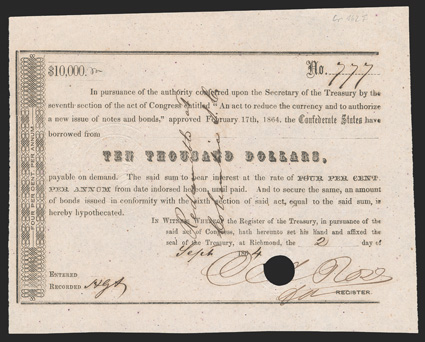 $10,000.
No. 777
In pursuance of the authority conferred upon the Secretary of the Treasury by the
seventh section of the act of Congress entitled "An act to reduce the currency and to authorize
a new issue of notes and bonds," approved February 17th, 1864, the Confederate States have
borrowed from
TEN THOUSAND DOLLARS,
payable on demand. The said sum to bear interest at the rate of FOUR PER CENT.
PER ANNUM from date indorsed hereon until paid. And to secure the same, an amount
of bonds issued in conformity with the sixth section of said act, equal to the said sum, is
hereby hypothecated.
In Witness Whereof, the Register of the Treasury, in pursuance of the
said act of Congress, hath hereunto set his hand and affixed the
seal of the Treasury, at Richmond, the 2 day of
Sept 1864
Entered
Recorded
Rose
REGISTER.